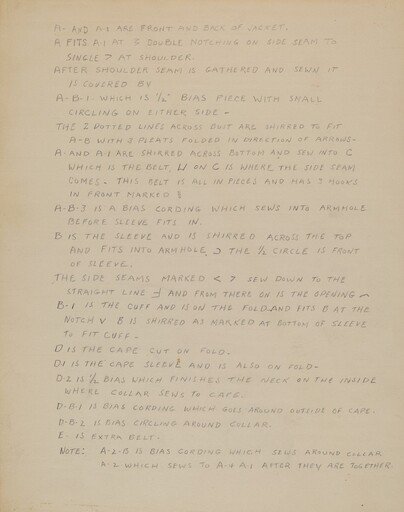 A- AND A-1 ARE FRONT AND BACK OF JACKET.
A FITS A-1 AT 3 DOUBLE NOTCHING ON SIDE SEAM TO
SINGLE > AT SHOULDER.
AFTER SHOULDER SEAM IS GATHERED AND SEWN IT
IS COVERED BY
A-B-1- WHICH IS 1/2" BIAS PIECE WITH SMALL
CIRCLING ON EITHER SIDE -
THE 2 DOTTED LINES ACROSS BUST ARE SHIRRED TO FIT
A-B WITH 3 PLEATS FOLDED IN DIRECTION OF ARROWS-
A- AND A-1 ARE SHIRRED ACROSS BOTTOM AND SEW INTO C
WHICH IS THE BELT, ON C IS WHERE THE SIDE SEAM
COMES. THIS BELT IS ALL IN PIECES AND HAS 3 HOOKS
IN FRONT MARKED
A-B-3 IS A BIAS CORDING WHICH SEWS INTO ARMHOLE
BEFORE SLEEVE FITS IN.
B IS THE SLEEVE AND IS SHIRRED ACROSS THE TOP
AND FITS INTO ARMHOLE, THE 1/2 CIRCLE IS FRONT
OF SLEEVE.
THE SIDE SEAMS MARKED < > SEW DOWN TO THE
STRAIGHT LINE AND FROM THERE ON IS THE OPENING
B-1 IS THE CUFF AND IS ON THE FOLD AND FITS B AT THE
NOTCH V B IS SHIRRED AS MARKED AT BOTTOM OF SLEEVE
TO FIT CUFF-
D IS THE CAPE CUT ON FOLD.
D1 IS THE CAPE SLEEVE AND IS ALSO ON FOLD-
D-2 IS 1/2 BIAS WHICH FINISHES THE NECK ON THE INSIDE
WHERE COLLAR SEWS TO CAPE.
D-B-1 IS BIAS CORDING WHICH GOES AROUND OUTSIDE OF CAPE.
D-B-2 IS BIAS CIRCLING AROUND COLLAR.
E- IS EXTRA BELT.
NOTE: A-2-B IS BIAS CORDING WHICH SEWS AROUND COLLAR
A-2 WHICH SEWS TO A-& A-1 AFTER THEY ARE TOGETHER.